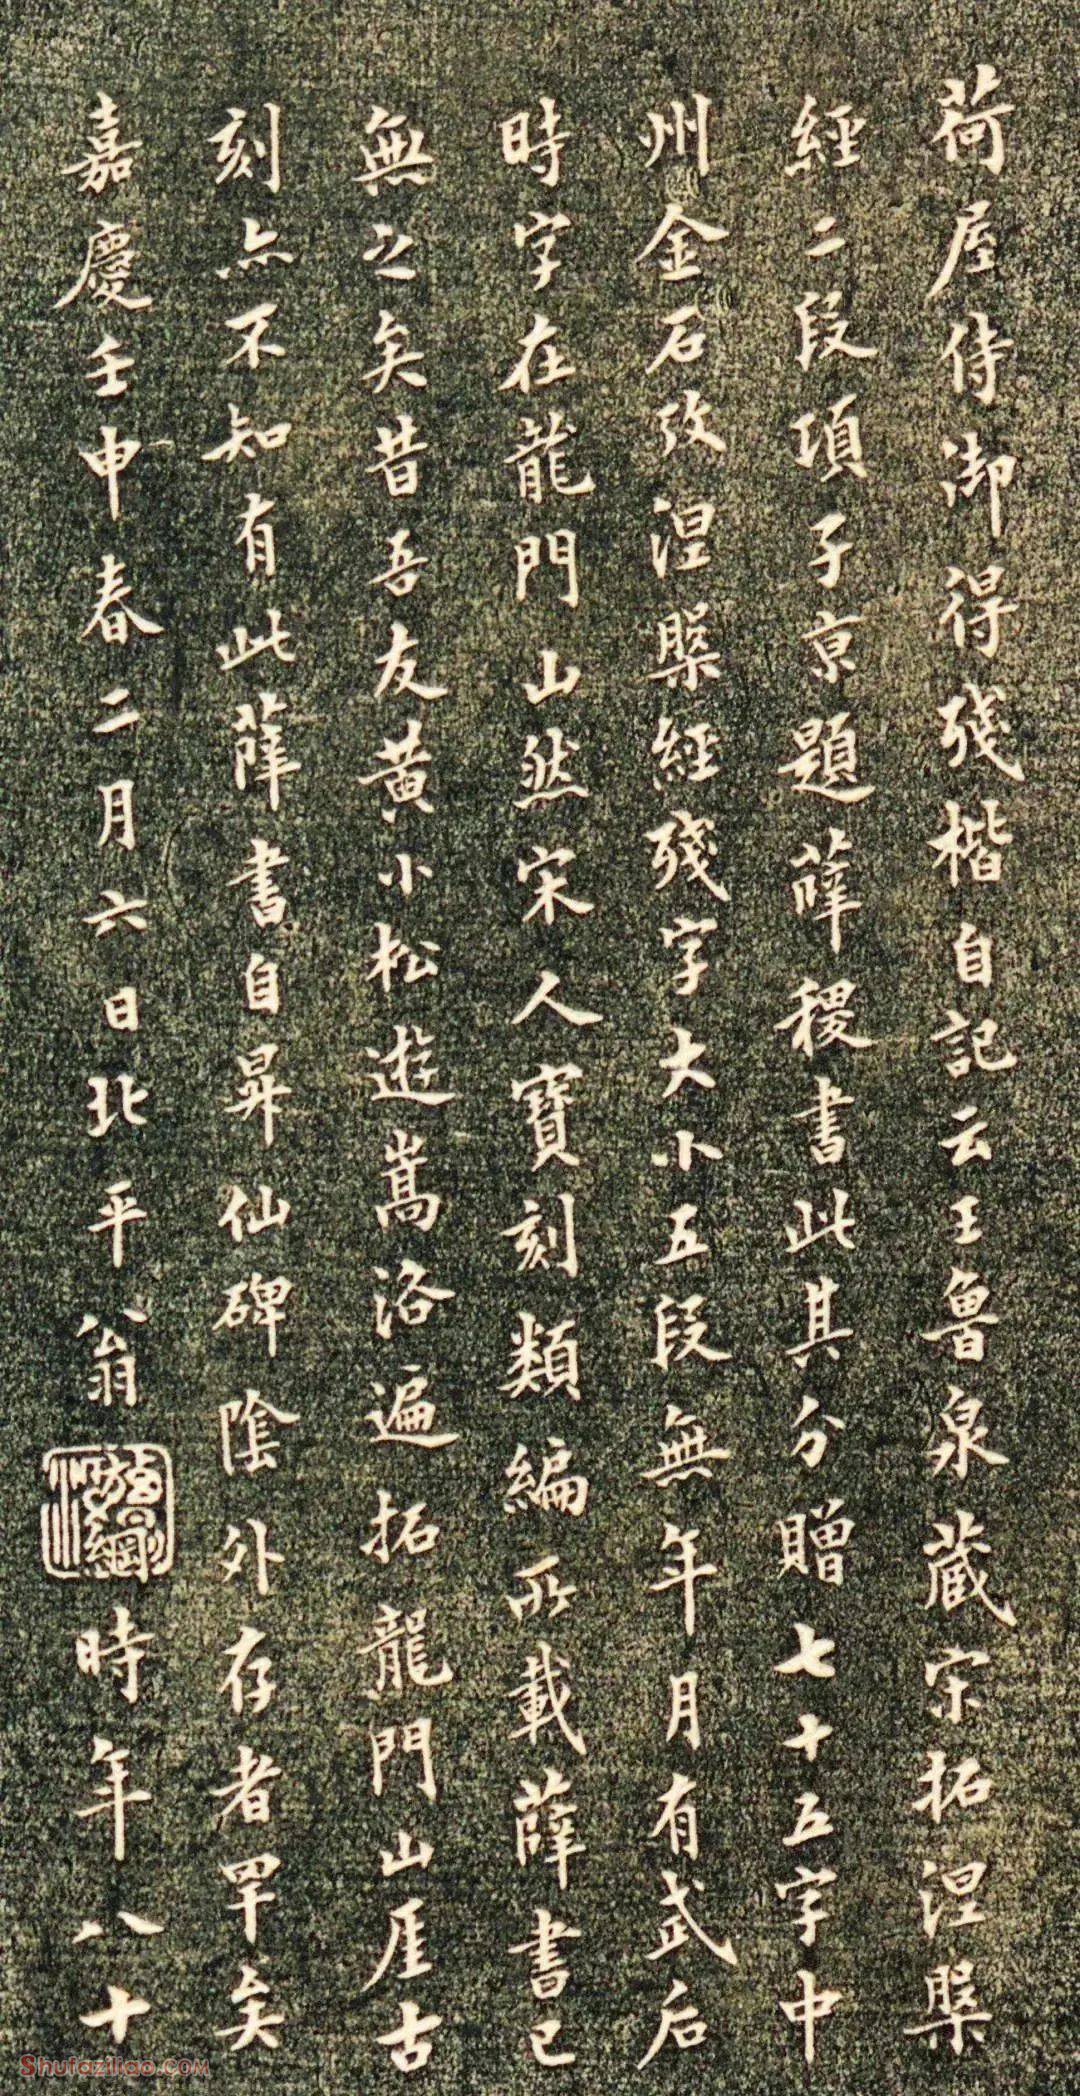 荷屋侍御得殘楷自記云王魯泉蔵宋拓涅槃
經二段項子京題薛稷書此其分贈七十五字中
州金石攷涅槃經殘字大小五段無年月有武后
時字在龍門山然宋人寶刻類編所載薛書已
無之矣昔吾友黃小松遊嵩洛遍拓龍門山厓古
刻亦不知有此薛書自昇仙碑陰外存者罕矣
嘉慶壬申春二月六日北平翁
方綱
時年八十
Shufaziliao.COM